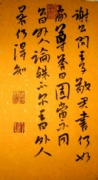 謝公問王子敬君書何如
君家尊答曰固當不同
公曰外論殊不爾王曰外人
那得知